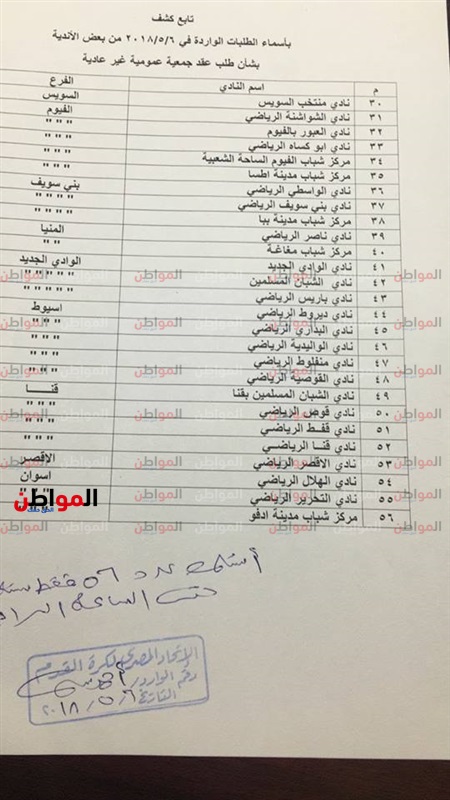 تابع كشف
بأسماء الطلبات الواردة في ٢٠١٨/٥/٦ من بعض الأندية
بشأن طلب عقد جمعية عمومية غير عادية
م اسم النادي الفرع
٣٠ نادي منتخب السويس السويس
٣١ نادي الشواشنة الرياضي الفيوم
٣٢ نادي العبور بالفيوم " " "
٣٣ نادي ابو كساه الرياضي " " "
٣٤ مركز شباب الفيوم الساحة الشعبية " " "
٣٥ مركز شباب مدينة اطسا " " "
٣٦ نادي الواسطي الرياضي بني سويف
٣٧ نادي بني سويف الرياضي " " " "
٣٨ مركز شباب مدينة ببا " " " "
٣٩ نادي ناصر الرياضي المنيا
٤٠ مركز شباب مغاغة " "
٤١ نادي الوادي الجديد الوادي الجديد
٤٢ نادي الشبان المسلمين " " " " "
٤٣ نادي باريس الرياضي " " " " "
٤٤ نادي ديروط الرياضي اسيوط
٤٥ نادي البداري الرياضي " " "
٤٦ نادي الواليدية الرياضي " " "
٤٧ نادي منفلوط الرياضي " " "
٤٨ نادي القوصية الرياضي " " "
٤٩ نادي الشبان المسلمين بقنا قنا
٥٠ نادي قوص الرياضي " " "
٥١ نادي قفط الرياضي " " "
٥٢ نادي قنا الرياضي " " "
٥٣ نادي الأقصر الرياضي الاقصر
٥٤ نادي الهلال الرياضي اسوان
٥٥ نادي التحرير الرياضي
٥٦ مركز شباب مدينة ادفو
المواطن
عدد ٥٦ فقط
حتى الساعة
الإتحاد المصرى لكرة القدم
رقم الوارد
التاريخ ٢٠١٨/٥/٦